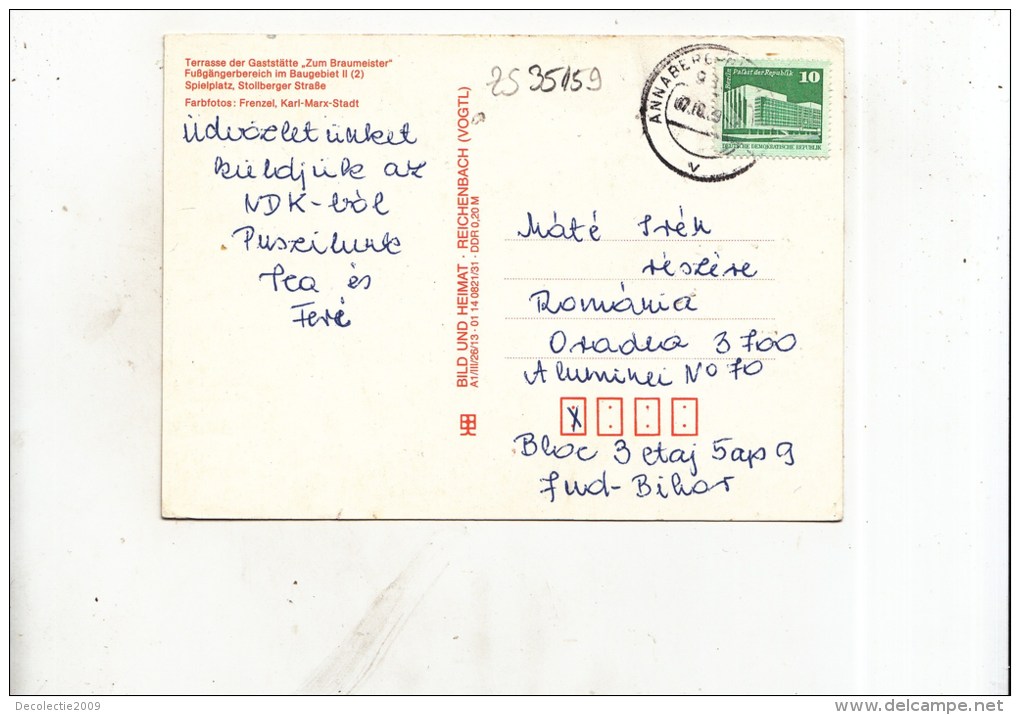 Terrasse der Gaststätte „Zum Braumeister"
Fußgängerbereich im Baugebiet II (2)
Spielplatz, Stollberger Straße
Farbfotos: Frenzel, Karl-Marx-Stadt
Üdvözletünket
küldjük az
NDK-ból
Puszilunk
és
Feri
BILD UND HEIMAT · REICHENBACH (VOGTL)
A1/III/26/13 · 01 14 0821/31 · DDR 0,20 M
2S 35159
ANNABERG
93
V
Berlin Palast der Republik
10
DEUTSCHE DEMOKRATISCHE REPUBLIK
Máté Irén
részére
Románia
Oradea 3700
Aluminei No 70
X
Bloc 3 etaj 5 ap 9
Jud-Bihor
Decolectie2009
www.delcampe.net